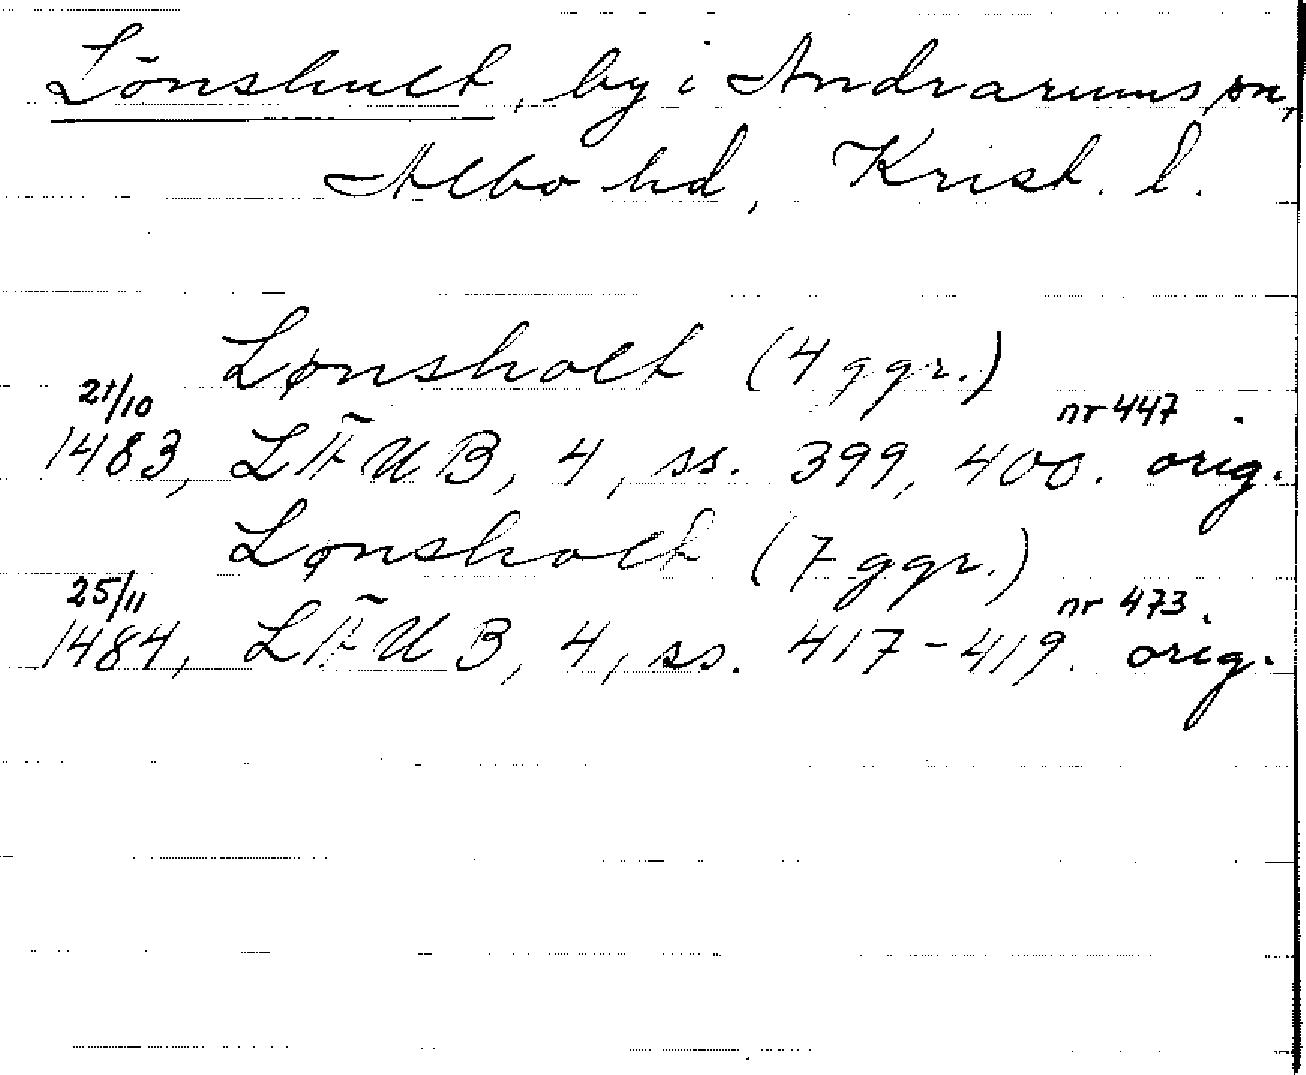 Lönshult, by i Andrarums sn,
Albo hd, Krist. l.
Lønsholt (4 ggr.)
21/10 nr 447
1483, LÄUB, 4, ss. 399, 400. orig.
Lønsholt (7 ggr.)
25/11 nr 473
1484, LÄUB, 4, ss. 417-419. orig.